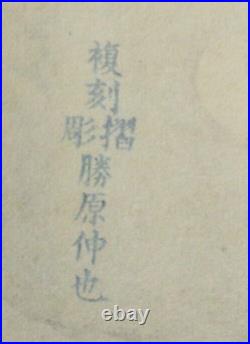 複刻
彫摺
勝原伸也